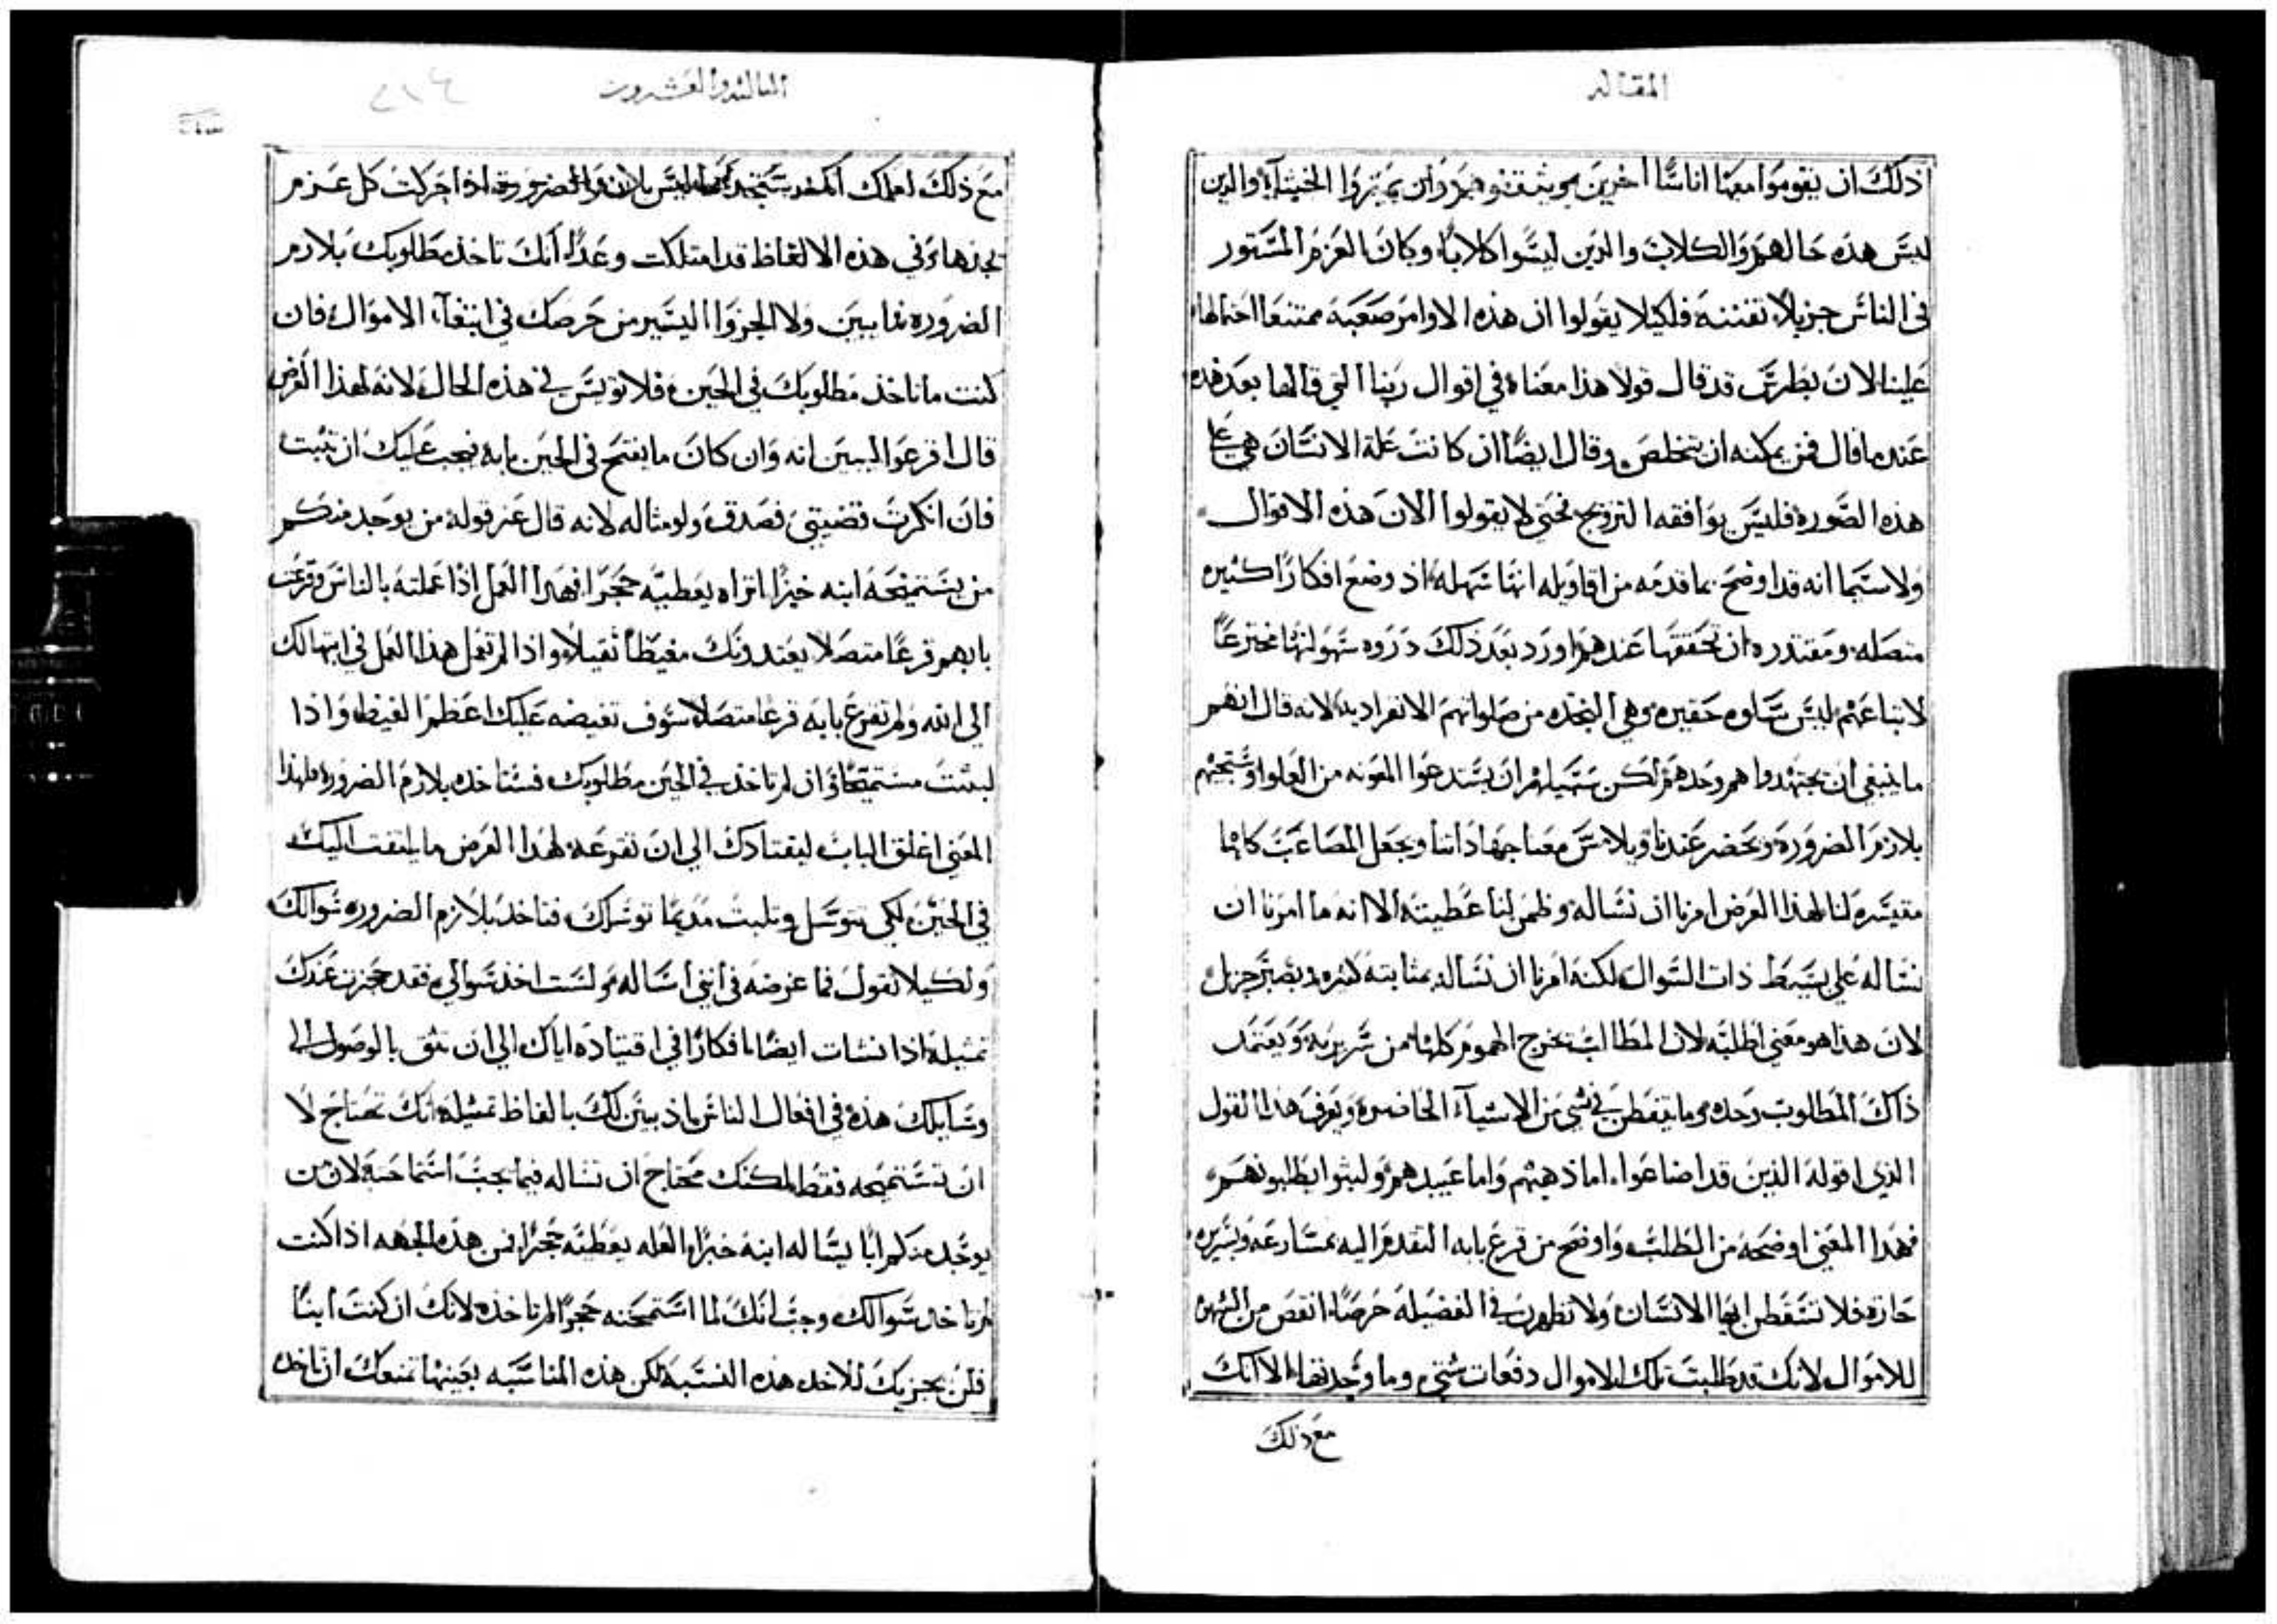 المقاله
ذلك ان يقوموا معها اناسًا اخرين يوبقونهم وان يميزوا الخبثآء والدين
ليس هذه حالهم والكلاب والذين ليسوا كلابًا وكان العزم المستور
في الناس جزيلاً تفننه فلكيلا يقولوا ان هذه الاوامر صعبه ممتنعًا احتمالها
علينا لان بطرس قد قال قولا هذا معناه في اقوال ربنا التي قالها بعد هذه
عندما قال فمن يمكنه ان يتخلص وقال ايضًا ان كانت علة الانسان هي على
هذه الصوره فليس يوافقه التزويج فحتى لا يقولوا الان هذه الاقوال
ولاسيما انه قد اوضح بما قدمه من اقاويله انها سهله اذ وضع افكارًا كثيره
متصله ومقتدره ان تحققها عندهم اورد بعد ذلك ذروه سهولتها مخترعًا
لاتباعهم ليس سلوه حقيره وهي النجده من صلواتهم الانفراديه لانه قال انهم
ما ينبغي ان يجتهدوا هم وحدهم لكن سبيلهم ان يستدعوا المعونه من العلو وستجيهم
بلازم الضروره وتحضر عندنا وتلامس معنا جهاداتنا ويجعل المصاعب كلها
متيسره لنا لهذا الغرض امرنا ان نساله وظمن لنا عطيته الا انه ما امرنا ان
نساله على بسيط ذات السوال لكنه امرنا ان نساله بمثابته كثيره وبصبر جزيل
لان هذا هو معنى اطلبه لان المطالب يخرج الهموم كلها من سريرته ويعتمد
ذاك المطلوب وحده وما يتفطن في شي من الاشيآء الحاضره ويعرف هذا القول
الذي اقوله الذين قد اضاعوا اما ذهبهم واما عبيدهم ولبثوا يطلبونهم
فهذا المعني اوضحه من الطلب واوضح من قرع بابه التقدم اليه بمسارعه وبسريره
حاره فلا تسقطن ايها الانسان ولا تظهرن في الفضيله حرصًا انقص من الشهوه
للاموال لانك قد طلبت تلك الاموال دفعات شتي وما وجدتها الا انك
مع ذلك
الثالثه والعشرون
مع ذلك لعلمك انك قد ستجدها ليس بلازم الضروره اذا حركت كل عزم
بجدها وفي هذه الالفاظ قد امتلكت وعدًا انك تاخذ مطلوبك بلازم
الضروره فما يبين ولا الجزوا اليسير من حرصك في ابتغآء الاموال فان
كنت ما تاخذ مطلوبك في الحين فلا توئس في هذه الحال لانه لهذا الغرض
قال اقرعوا ليبين انه وان كان ما يفتح في الحين بابه فيجب عليك ان تثبت
فان انكرت قضيتي فصدق ولو مثاله لانه قال عز قوله من يوجد منكم
من يستميحه ابنه خبزًا اتراه يعطيه حجرًا فهذا العمل إذا عملته بالناس وقرعت
بابهم قرعًا متصلا يعتدونك مغيظًا ثقيلا واذا لم تعمل هذا العمل في ابتهالك
الي الله ولم تقرع بابه قرعا متصلا سوف تغيضه عليك اعظم الغيظ واذا
لبثت مستميحًا وان لم تاخذ في الحين مطلوبك فستاخذه بلازم الضروره فلهذا
المعنى اغلق الباب ليقتادك الي ان تقرعه لهذا الغرض ما يلتفت اليك
في الحين لكي تتوسل وتلبث مديمًا توسلك فتاخذ بلازم الضروره سوالك
ولكيلا تقول فما غرضه في انني اساله ولست اخذ سوالي فقد حجزت عندك
تمثيله اذا نشات ايضًا افكارًا في اقتياده اياك الي ان تثق بالوصول الي
وسايلك هذه في افعال الناس اذ بين لك بالفاظ تمثيله انك تحتاج لا
ان تستميحه فقط لكنك محتاج ان تساله فيما يجب استماحته لان من
يوجد منكم ابًا يساله ابنه خبزًا العله يعطيه حجرًا فمن هذه الجهه اذا كنت
لم تاخذ سوالك وجب انك لما استمحته حجرًا لم تاخذه لانك ان كنت ابنًا
فلن يجزيك للاخد هذه النسبه لكن هذه المناسبه بعينها تمنعك ان تاخذ